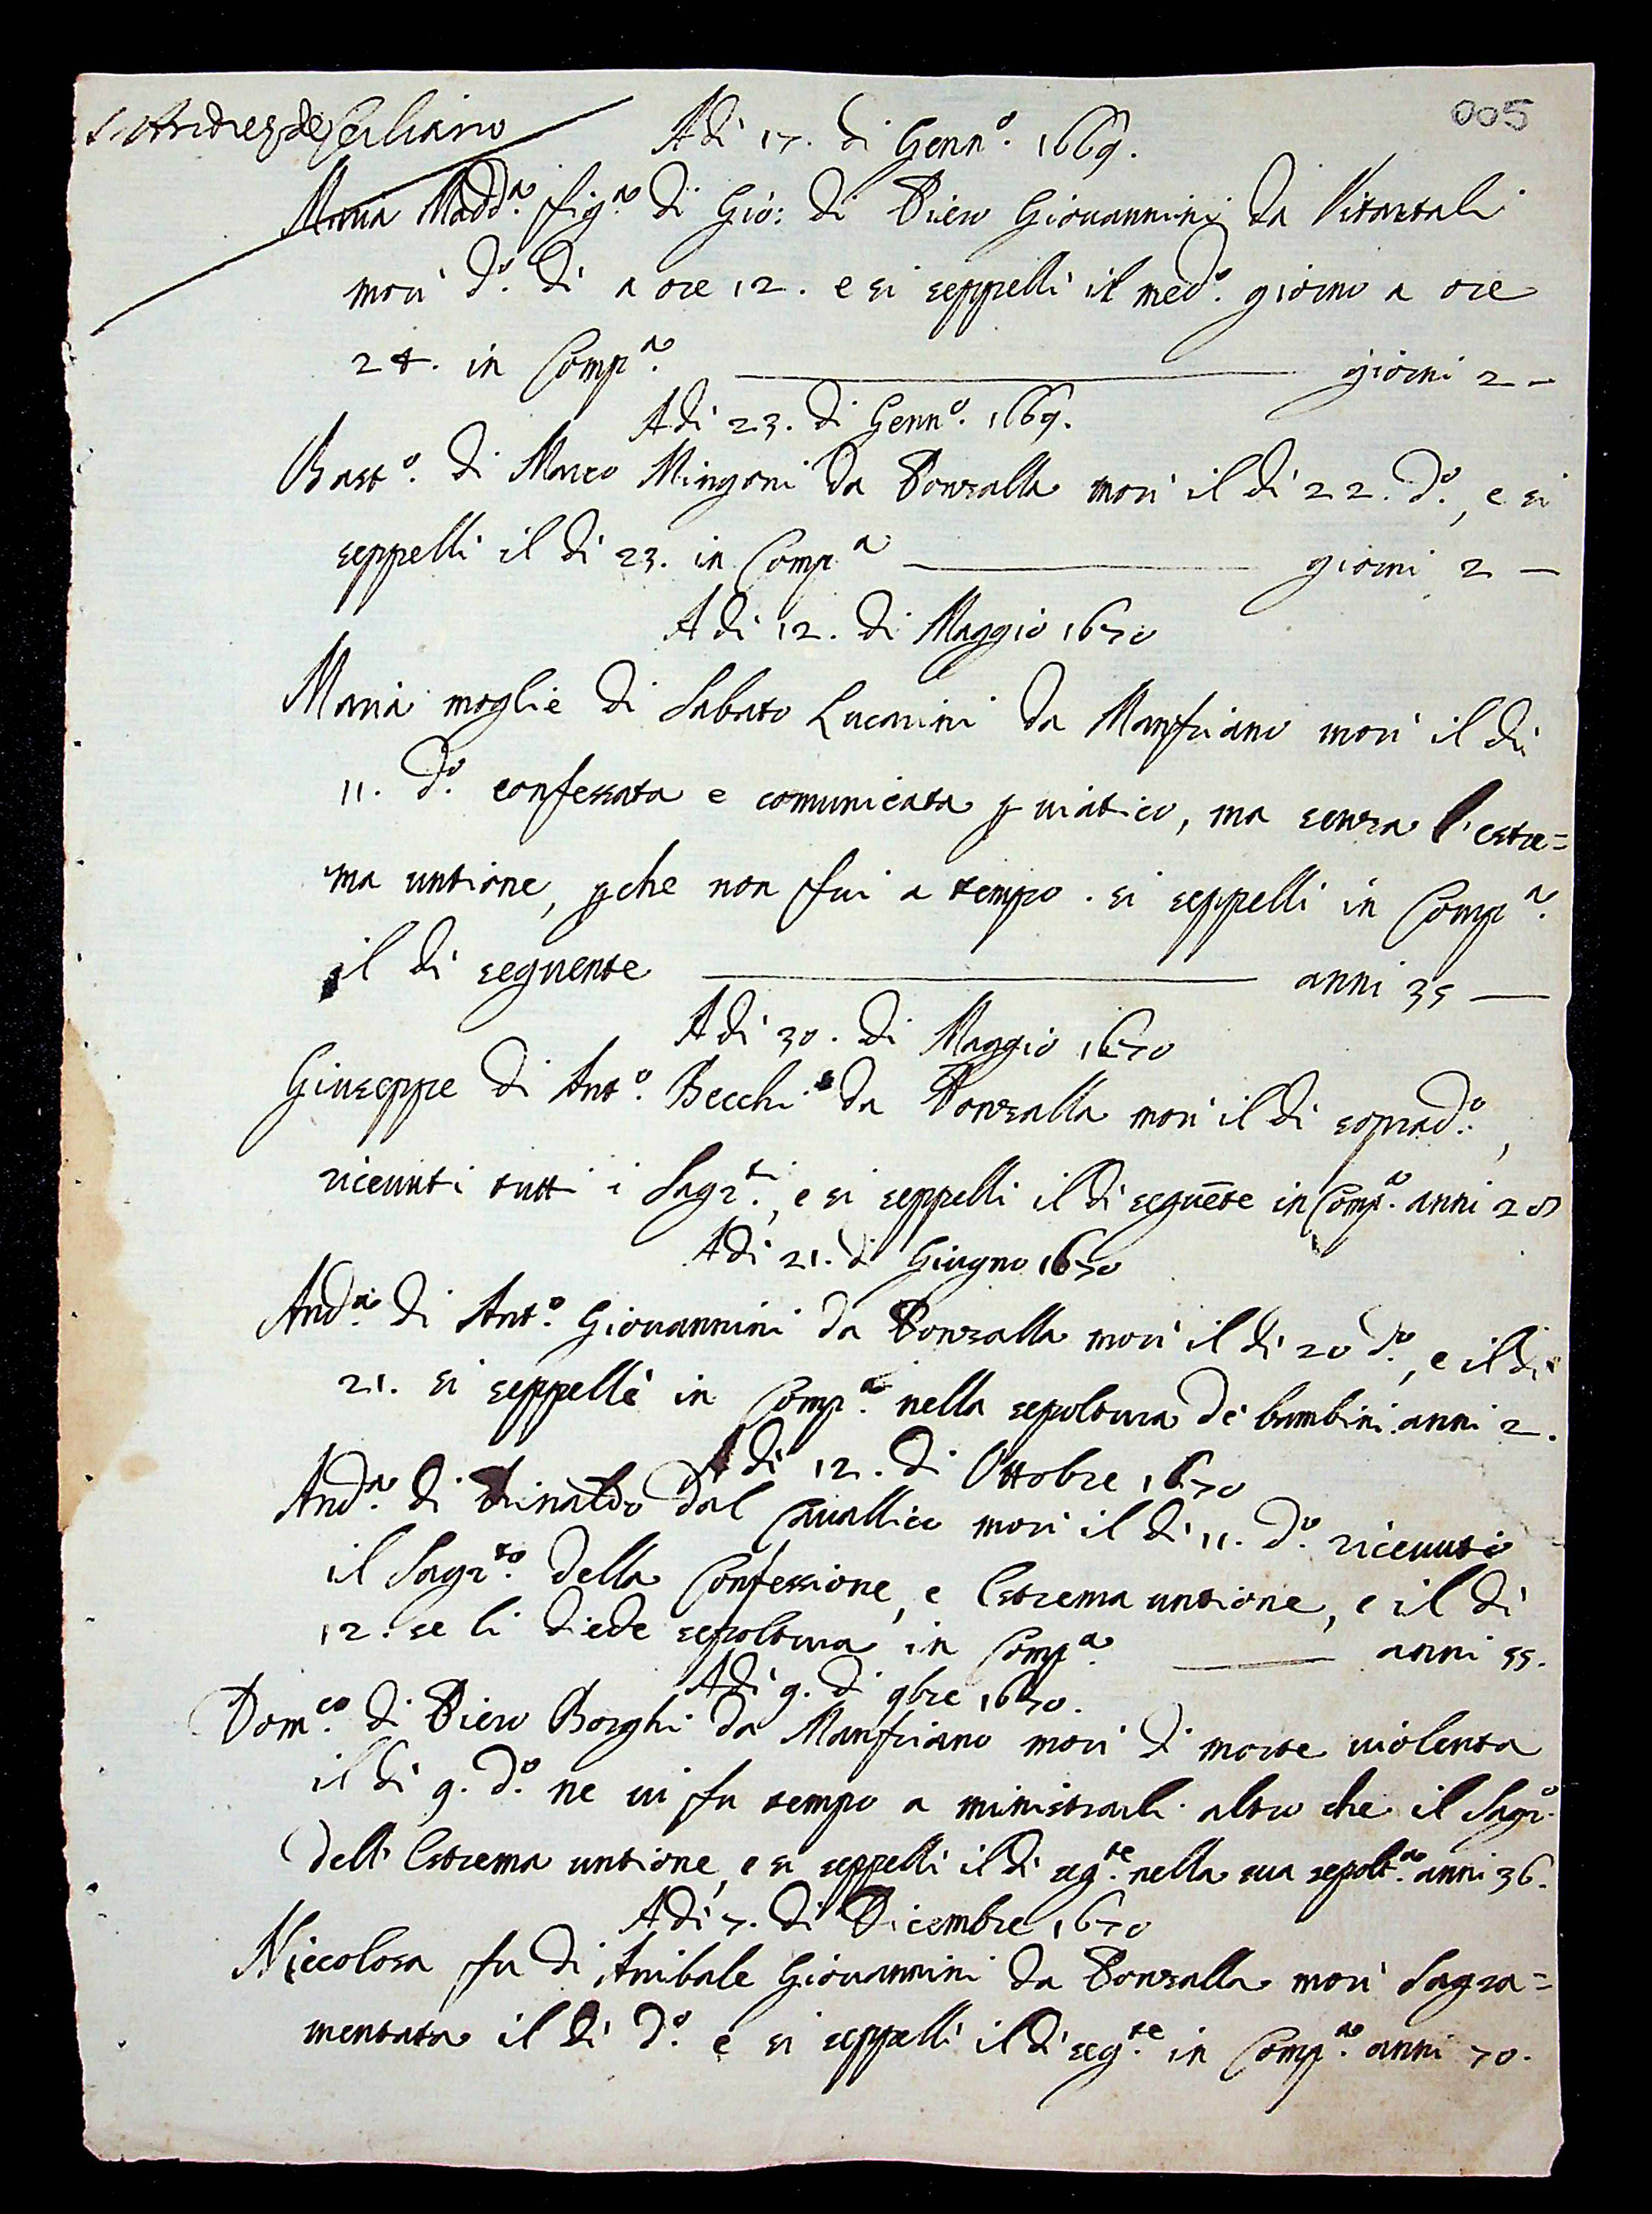 S. Andrea de Cerliano
005
Adi 17. di Genn.o 1669.
Maria Madd.a fig.a di Gio: di Piero Giovannini da Vitartali
morì d.o dì a ore 12. e si seppellì il med.o giorno a ore
24. in Comp.a giorni 2 –
Adi 23. di Genn.o 1669.
Bast.o di Marco Mingoni da Ponzalla morì il dì 22. d.o, e si
seppellì il dì 23. in Comp.a giorni 2 –
Adi 12. di Maggio 1670
Maria moglie di Sabato Lucarini da Manfriano morì il dì
11. d.o confessata e comunicata p viatico, ma senza l'estre=
ma untione, pche non fui a tempo. si seppellì in Comp.a
il dì seguente anni 35 —
Adi 30. di Maggio 1670
Giuseppe di Ant.o Becchi da Ponzalla morì il dì soprad.o,
ricevuti tutti i Sagr.ti, e si seppellì il dì seguēte in Comp.a anni 28
Adi 21. di Giugno 1670
And.a di Ant.o Giovannini da Ponzalla morì il dì 20 d.o, e il dì
21. si seppellì in Comp.a nella sepoltura de bambini anni 2.
Adi 12. di Ottobre 1670
And.a di Rinaldo dal Cavallico morì il dì 11. d.o ricevuto
il Sagr.to della Confessione, e Estrema untione, e il dì
12. se li diede sepoltura in Comp.a anni 55.
Adi 9. di 9bre 1670.
Dom.co di Piero Borghi da Manfriano morì di morte violenta
il dì 9. d.o ne vi fu tempo a ministrarli altro che il Sagr.o
dell'Estrema untione, e si seppellì il dì seg.te nella sua sepolt.a anni 36.
Adi 7. di Dicembre 1670
Niccolosa fu di Anibale Giovannini da Ponzalla morì Sagra=
mentata il dì d.o e si seppellì il dì seg.te in Comp.a anni 70.